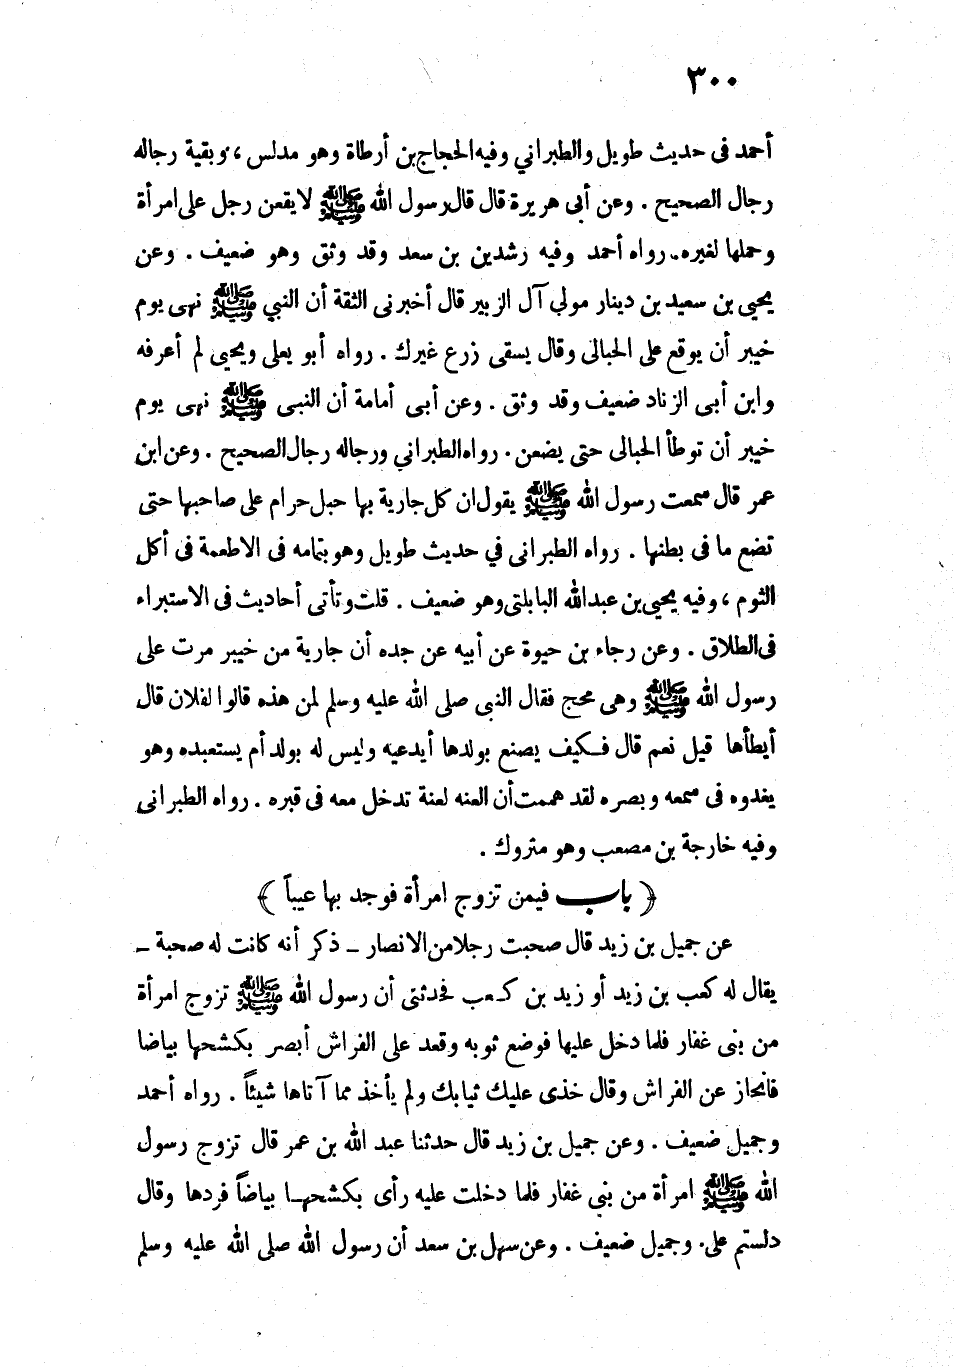 ٣٠٠
أحمد فى حديث طويل والطبراني وفيه الحجاج بن أرطاة وهو مدلس ، وبقية رجاله
رجال الصحيح . وعن أبى هريرة قال قال رسول الله ﷺ لا يقعن رجل على امرأة
وحملها لغيره . رواه أحمد وفيه رشدين بن سعد وقد وثق وهو ضعيف . وعن
يحيى بن سعيد بن دينار مولي آل الزبير قال أخبرنى الثقة أن النبي ﷺ نهى يوم
خيبر أن يوقع على الحبالى وقال يسقى زرع غيرك . رواه أبو يعلى ويحيى لم أعرفه
وابن أبى الزناد ضعيف وقد وثق . وعن أبى أمامة أن النبى ﷺ نهى يوم
خيبر أن توطأ الحبالى حتى يضعن . رواه الطبراني ورجاله رجال الصحيح . وعن ابن
عمر قال سمعت رسول الله ﷺ يقول ان كل جارية بها حبل حرام على صاحبها حتى
تضع ما فى بطنها . رواه الطبرانى في حديث طويل وهو بتمامه فى الاطعمة فى أكل
الثوم ، وفيه يحيى بن عبدالله البابلتى وهو ضعيف . قلت وتأتى أحاديث فى الاستبراء
فى الطلاق . وعن رجاء بن حيوة عن أبيه عن جده أن جارية من خيبر مرت على
رسول الله ﷺ وهى محج فقال النبى صلى الله عليه وسلم لمن هذه قالوا لفلان قال
أيطأها قيل نعم قال فكيف يصنع بولدها أيدعيه وليس له بولد أم يستعبده وهو
يغدوه فى سمعه وبصره لقد هممت أن العنه لعنة تدخل معه فى قبره . رواه الطبرانى
وفيه خارجة بن مصعب وهو متروك .
﴿ باب فيمن تزوج امرأة فوجد بها عيباً ﴾
عن جميل بن زيد قال صحبت رجلا من الانصار ـ ذكر أنه كانت له صحبة ـ
يقال له كعب بن زيد أو زيد بن كعب فحدثنى أن رسول الله ﷺ تزوج امرأة
من بنى غفار فلما دخل عليها فوضع ثوبه وقعد على الفراش أبصر بكشحها بياضا
فانحاز عن الفراش وقال خذى عليك ثيابك ولم يأخذ مما آتاها شيئاً . رواه أحمد
وجميل ضعيف . وعن جميل بن زيد قال حدثنا عبد الله بن عمر قال تزوج رسول
الله ﷺ امرأة من بني غفار فلما دخلت عليه رأى بكشحهـا بياضاً فردها وقال
دلستم على . وجميل ضعيف . وعن سهل بن سعد أن رسول الله صلى الله عليه وسلم